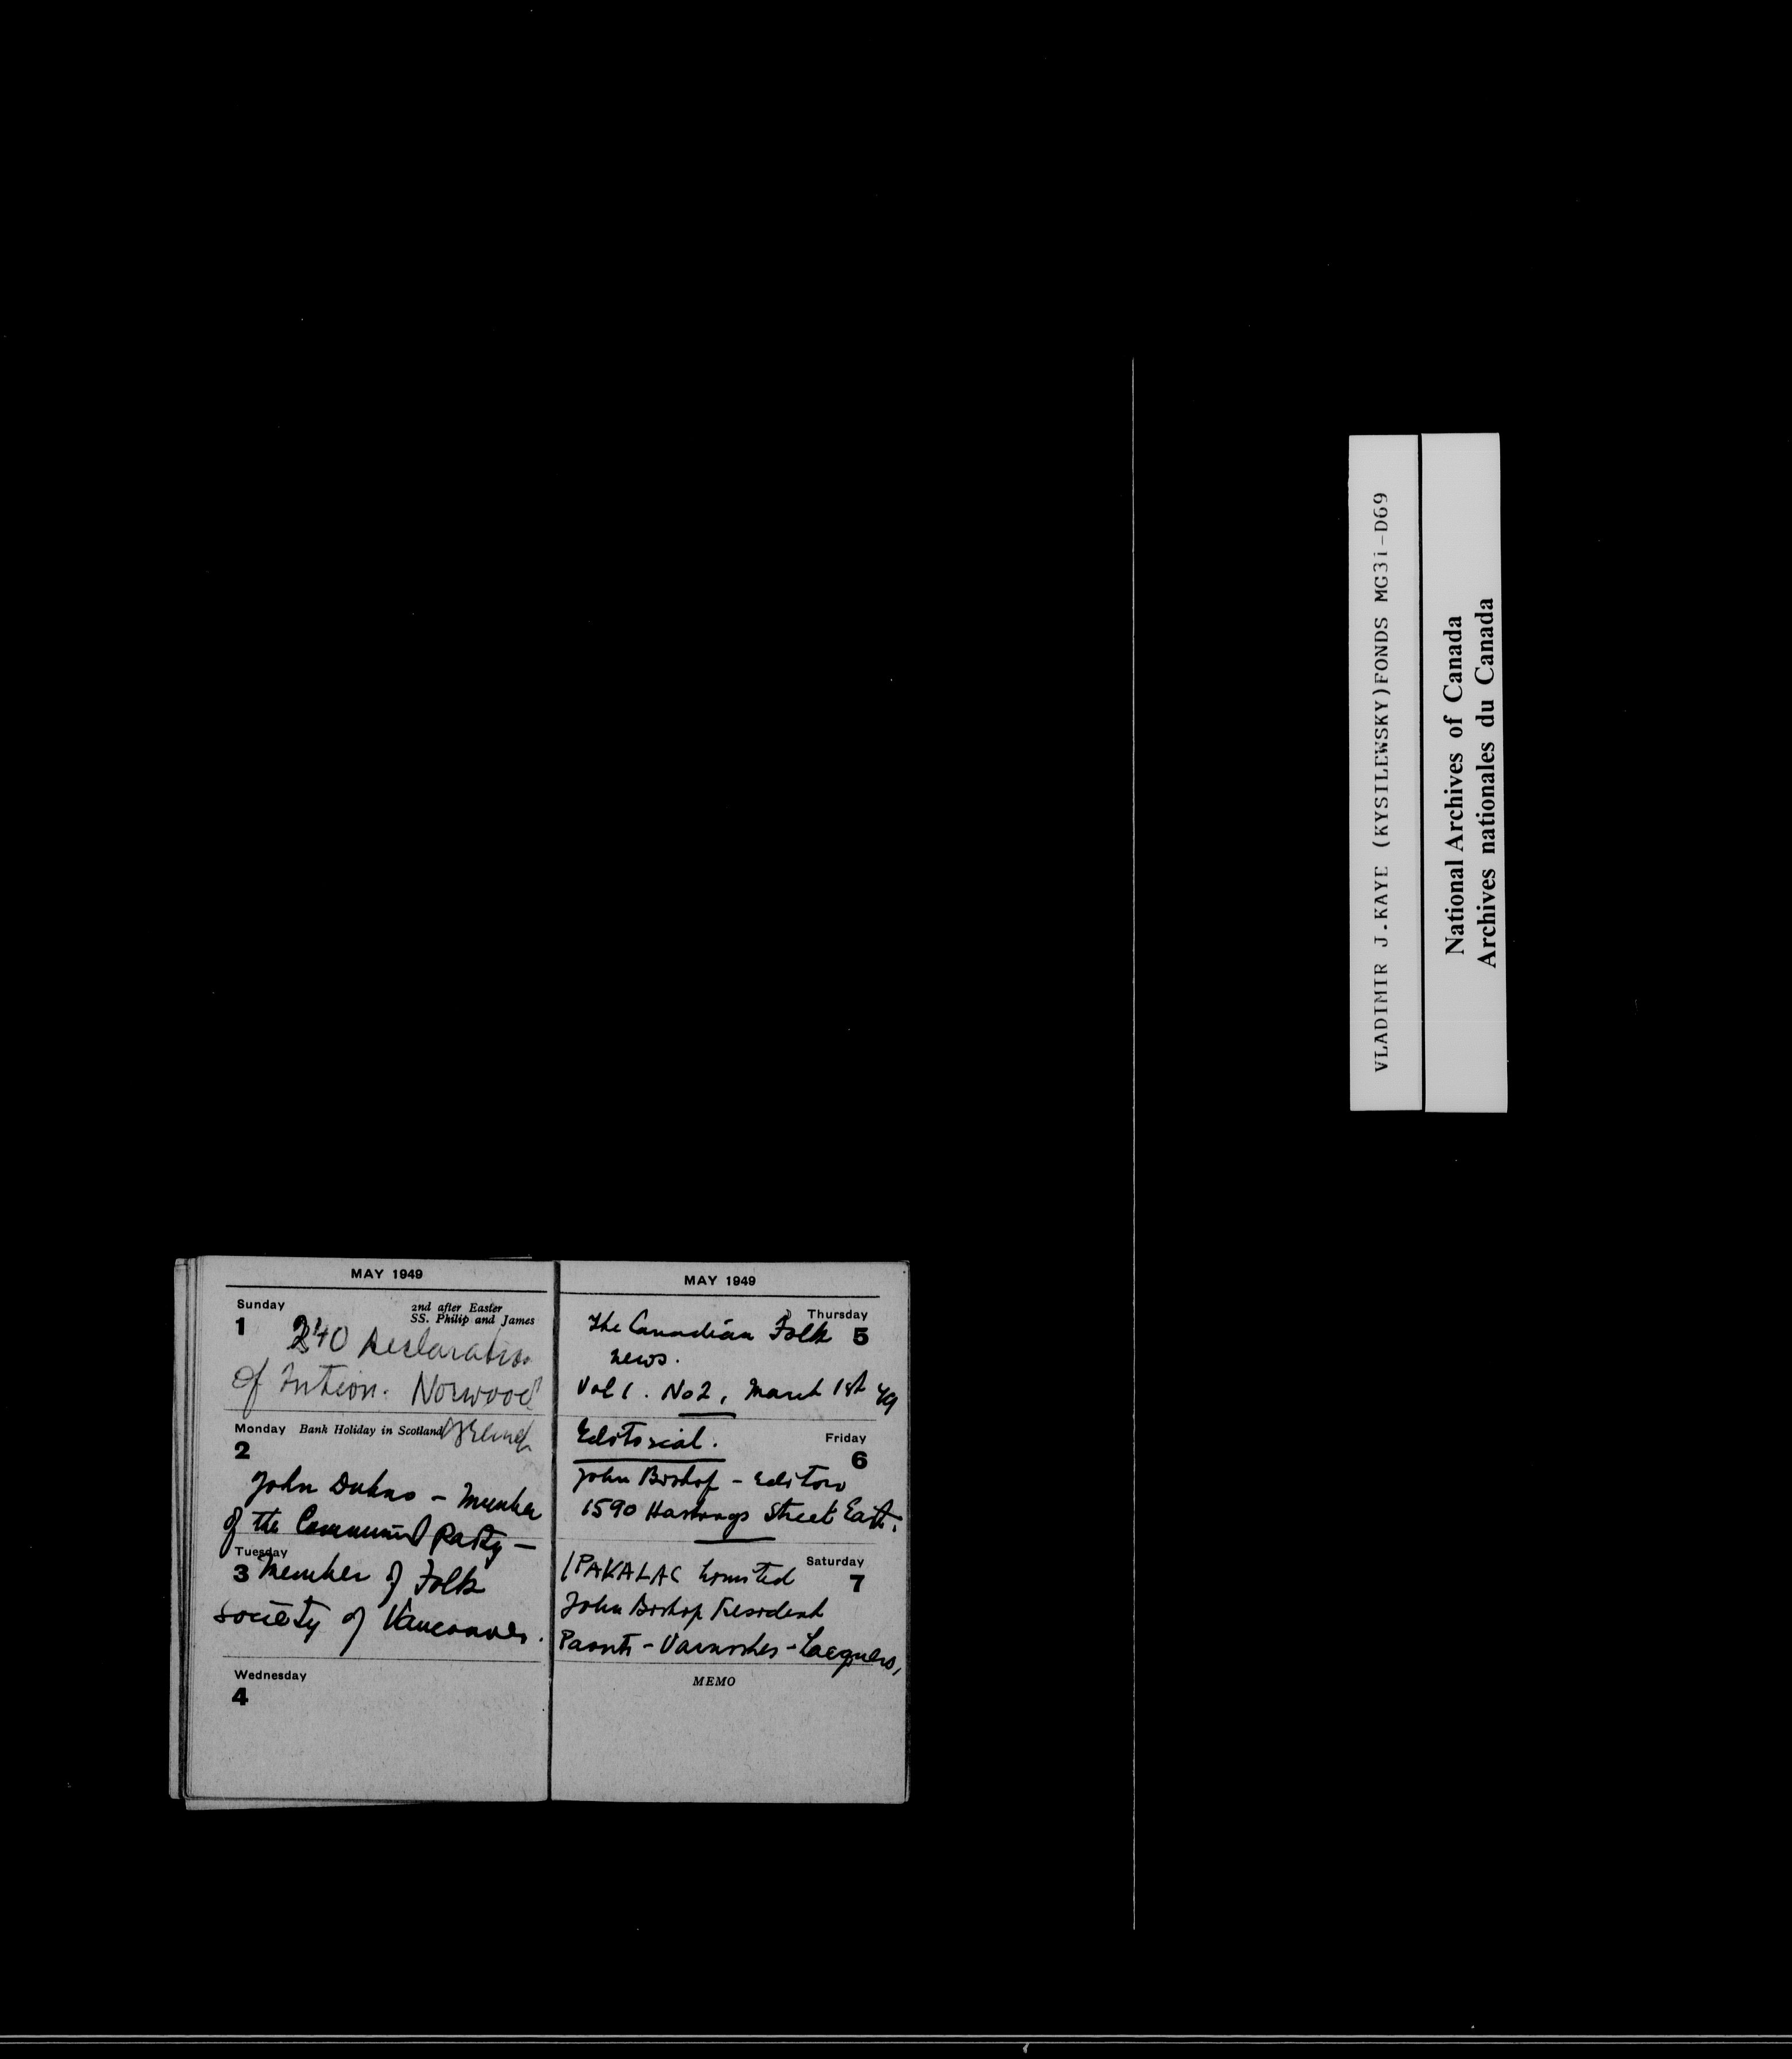 MAY 1949
Sunday
2nd after Easter
SS. Philip and James
1
240 Declaration
of Intion. Norwood
Monday Bank Holiday in Scotland
2
John Duhno - Member
of the Communist Party -
Tuesday
3 Member of Folk
Society of Vancouver.
Wednesday
4
MAY 1949
Thursday
5
The Canadian Folk
News.
Vol 1. No 2, March 1st 49
Friday
6
Editorial.
John Bishop - Editor
1590 Hastings Street East.
Saturday
7
PAKALAC Limited
John Bishop President
Paints - Varnishes - Lacquers,
MEMO
VLADIMIR J.KAYE (KYSILEWSKY)FONDS MG3i-D69
National Archives of Canada
Archives nationales du Canada